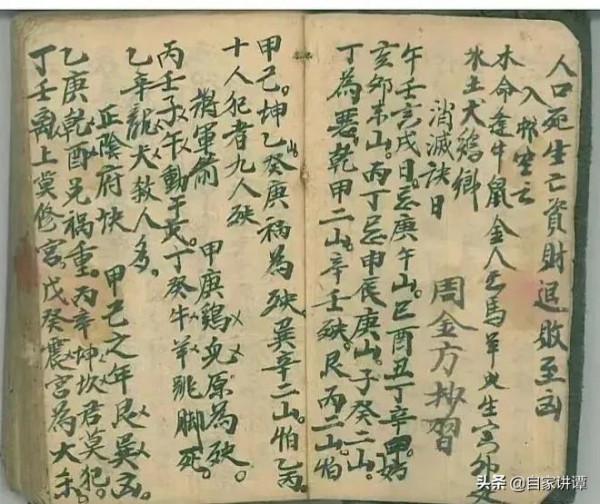 人口死生亡資財退敗至凶
入棺空亡
木命逢牛鼠金人馬羊生
水土犬鷄鄉
消滅訣曰
周金方抄習
午壬言戌日。忌庚午山。巳酉丑丁辛甲
亥卯未山。丙丁忌申辰庚山。子癸二山。
丁為惡。乾甲二山。辛壬殃。艮丙二山。怕
甲己。坤乙山。癸庚禍為殃巽辛二山怕乙丙。
十人犯者九人殃
將軍箭 甲庚鷄兔原為殃。
丙壬子午動干戈。丁癸牛羊跳脚死。
乙辛龍犬救人多。
正陰府訣 甲己之年艮巽凶。
乙庚乾酉兄禍重。丙辛坤坎君莫犯。
丁壬離上莫修宮戊癸震宮為大杀。
头条 @自家讲谭